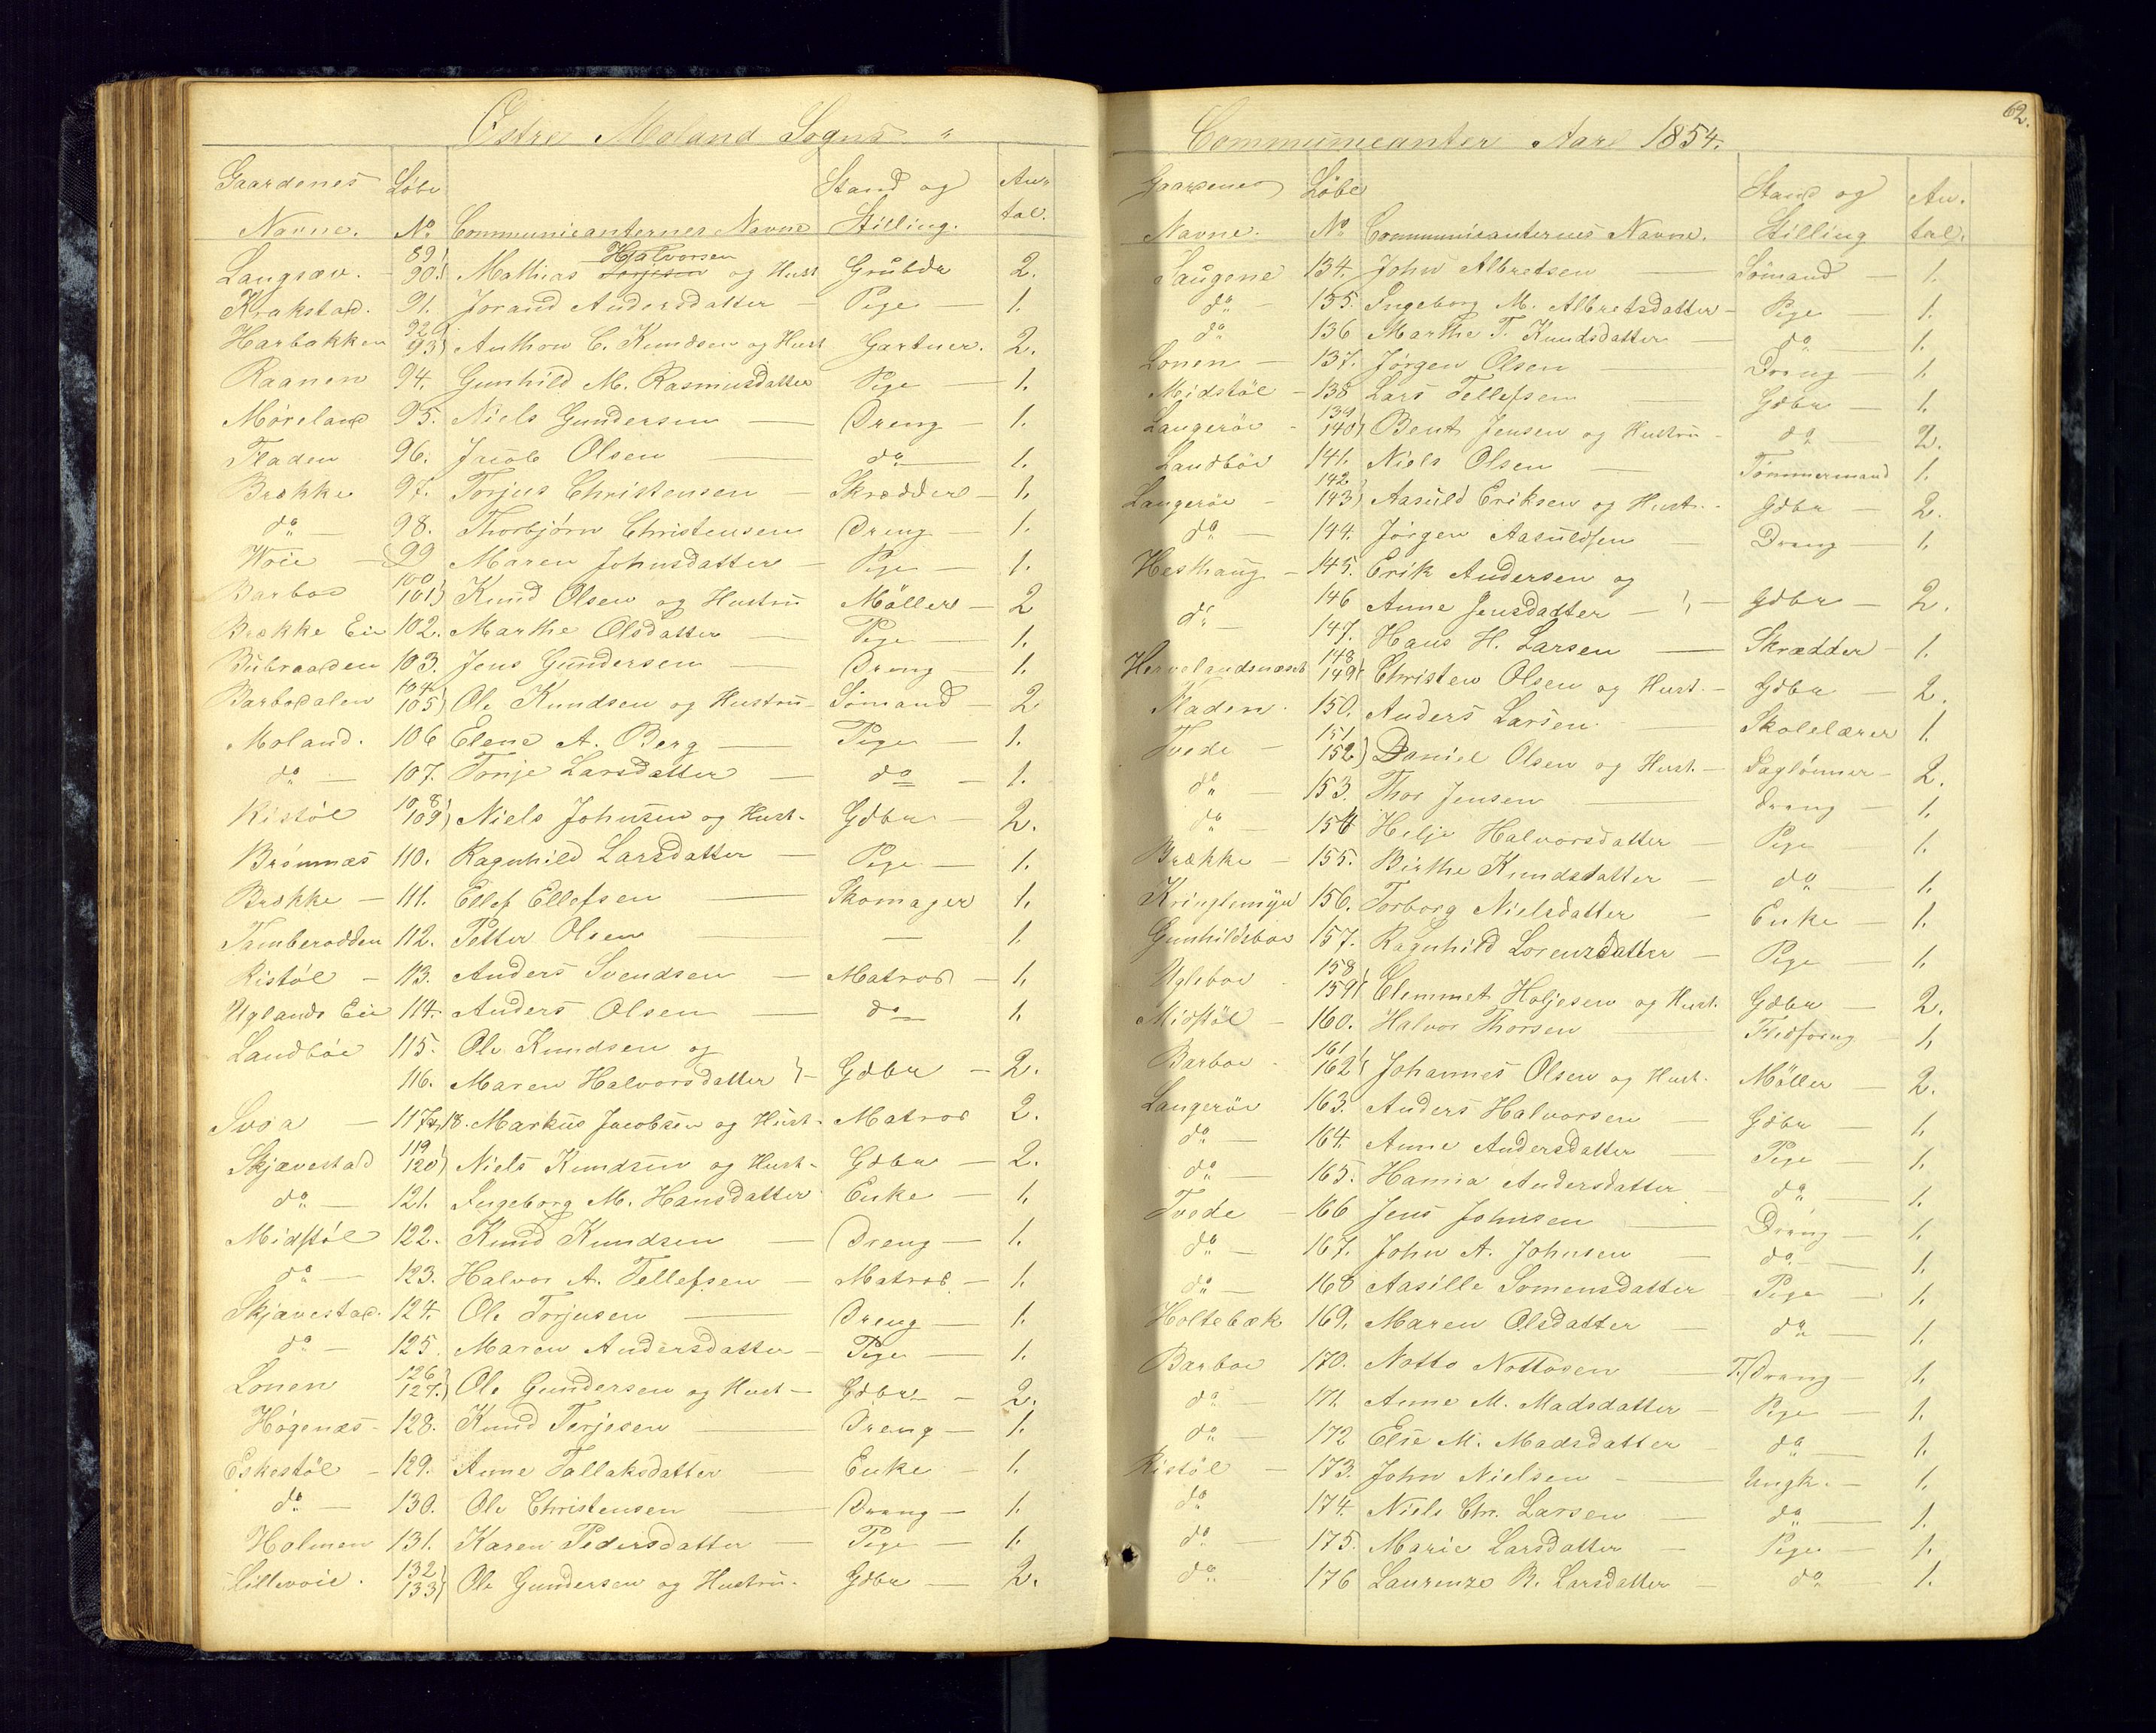 Østre Moland Sogns "
Gaardenes Løbe Stand og An-
Navne. No Communicanternes Navne Stilling. tal.
89 Hjalvorsen
Langsæv. - 90) Mathias Torjesen og Hust Grubdr 2.
Krakstad. 91. Jorand Andersdatter - Pige - 1.
92
Harbakken 93) Anthon C. Knudsen og Hust Gartner. 2.
Raanen 94. Gunhild M. Rasmusdatter Pige - 1.
Møreland 95. Niels Gundersen - Dreng - 1.
Fladen 96. Jacob Olsen - do - 1.
Brække 97. Torjus Christensen - Skrædder - 1.
do - 98. Thorbjørn Christensen Dreng - 1.
Wøie - 99 Maren Johnsdatter - Pige - 1.
100
Barboe 101) Knud Olsen og Hustru Møller - 2
Brække Eie 102. Marthe Olsdatter - Pige - 1.
Bubraaden 103. Jens Gundersen - Dreng - 1.
104
Barbodalen 105) Ole Knudsen og Hustru - Sømand - 2
Moland. 106 Elene A. Berg - Pige - 1.
do - 107. Tonje Larsdatter - do - 1.
108
Ristøl 109) Niels Johnsen og Hust. Gdbr - 2.
Brønnæs 110. Ragnhild Larsdatter - Pige - 1.
Brække - 111. Ellef Ellefsen - Skomager 1.
Tamberodden 112. Petter Olsen - - 1.
Ristøl - 113. Anders Svendsen - Matros - 1.
Uglands Eie 114. Anders Olsen - do - 1.
Landbøe 115. Ole Knudsen og
116. Maren Halvorsdatter } - Gdbr - 2.
Svoa - 117 & 18. Markus Jacobsen og Hust. Matros 2.
119
Skjævestad 120) Niels Knudsen og Hust. Gdbr - 2.
do - 121. Ingeborg M. Hansdatter Enke - 1.
Midstøl 122. Knud Knudsen - Dreng - 1.
do - 123. Halvor A. Tellefsen - Matros. - 1.
Skjævestad. 124. Ole Torjusen - Dreng - 1.
do - 125. Maren Andersdatter - Pige - 1.
126
Lonen 127.) Ole Gundersen og Hust - Gdbr - 2.
Høgenæs - 128. Knud Terjesen - Dreng - 1.
Eskestøl - 129. Anne Tallaksdatter - Enke - 1.
do - 130. Ole Christensen - Dreng - 1.
Holmen 131. Karen Pedersdatter - Pige - 1.
132
Lillevoie. 133) Ole Gundersen og Hustru. Gdbr - 2.
62.
Communicanter Aaret 1854.
Gaardenes Løbe Stand og An-
Navne. No Communicanternes Navne. Stilling tal.
Saugene 134. John Albretsen - Sømand - 1.
do - 135. Ingeborg M. Albretsdatter - Pige - 1.
do 136 Marthe T. Knudsdatter - do 1.
Lonen - 137. Jørgen Olsen - Dreng - 1.
Midstøl - 138 Lars Tellefsen - Gdbr - 1.
139
Langerøe - 140) Bent Jensen og Hustru - do - 2.
Landbøe 141. Niels Olsen - Tømmermand 1.
142
Langerøe - 143) Aasuld Eriksen og Hust. - Gdbr - 2.
do - 144. Jørgen Aasuldsen - Dreng - 1.
Heskaug - 145. Erik Andersen og
146 Anne Jensdatter - } - Gdbr - 2.
do - 147. Hans H. Larsen - Skrædder - 1.
148
Hervelandsnæset 149) Christen Olsen og Hust. - Gdbr - 2.
Fladen. 150. Anders Larsen - Skolelærer 1.
151
Tvede - 152) Daniel Olsen og Hust. - Daglønner - 2.
do - 153. Thor Jensen - Dreng - 1.
do - 154 Helje Halvorsdatter - Pige - 1.
Brække - 155. Birthe Knudsdatter - do - 1.
156. Torborg Nielsdatter - Enke - 1.
Gunhildsboe 157. Ragnhild Lorenzdatter - Pige - 1.
158
Ugleboe - 159) Clemmet Holjesen og Hust. Gdbr - 2.
Midstøl - 160. Halvor Thorsen - 1.
161
Barboe - 162) Johannes Olsen og Hust. Møller - 2.
Langerøe 163. Anders Halvorsen - Gdbr - 1.
do - 164. Anne Andersdatter - Pige - 1.
do - 165. Hamia Andersdatter - do - 1.
Tvede - 166 Jens Johnsen - Dreng - 1.
do - 167. John A. Johnsen - do - 1.
do - 168 Aasille Somensdatter - Pige - 1.
Holtebæk 169. Maren Olsdatter - do - 1.
Barboe 170. Notto Nottosen - T./Dreng - 1.
do - 171. Anne M. Madsdatter - Pige - 1.
do - 172 Else M. Madsdatter - do - 1.
Ristøl - 173. John Nielsen - Ungk. - 1.
do 174. Niels Chr. Larsen - do - 1.
do - 175. Marie Larsdatter - Pige - 1.
do - 176 Laurenze B. Larsdatter - do - 1.